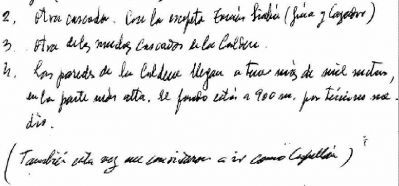 2. Otra cascada. Con la escopeta Tomás (Guía y Cazador)
3. Otra de las muchas cascadas en la Caldera.
4. Las paredes de la Caldera llegan a tener más de mil metros,
en la parte más alta. El fondo está a 900 m. por término me-
dio.
(También esta vez me convidaron a ir como Capellán)